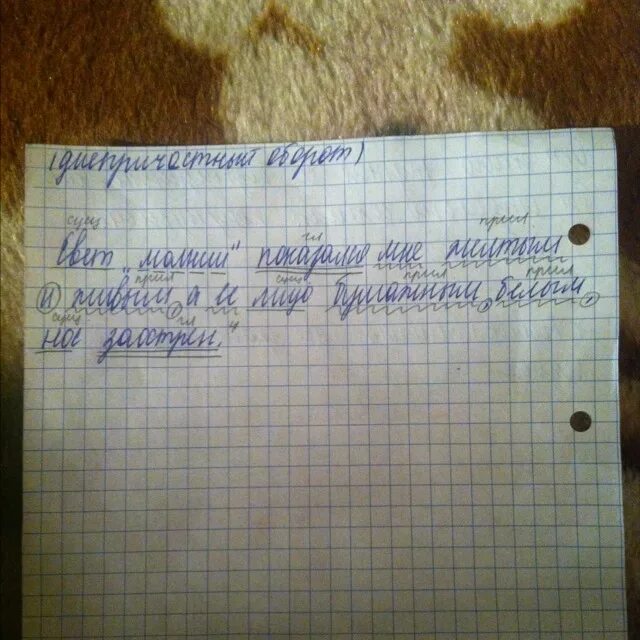 (диепричастный оборот)
сущ гл прил
Свет „молнии" показался мне желтым
прил сущ прил прил
и живым а ее лицо бумажным, белым,
сущ гл
нос заострен.